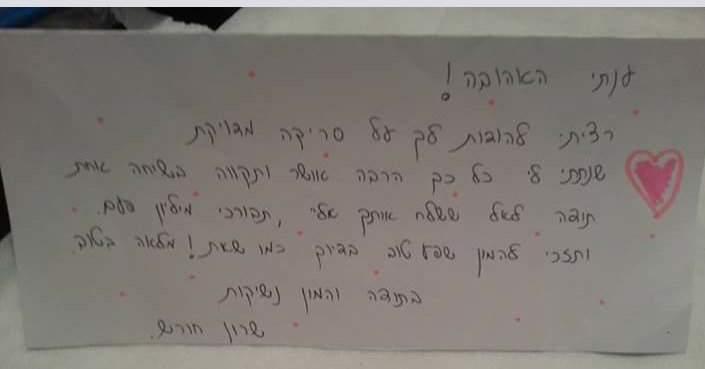 ענתי האהובה!
רציתי להודות לך על סריקה מדויקת
שנתת לי כל כך הרבה אושר ותקווה בשיחה אחת
תודה לאל ששלח אותך אלי, תבורכי מיליון פעם.
ותזכי להמון שפע טוב בדיוק כמו שאת! מלאה בטוב.
בתודה והמון נשיקות
שרון חורש.